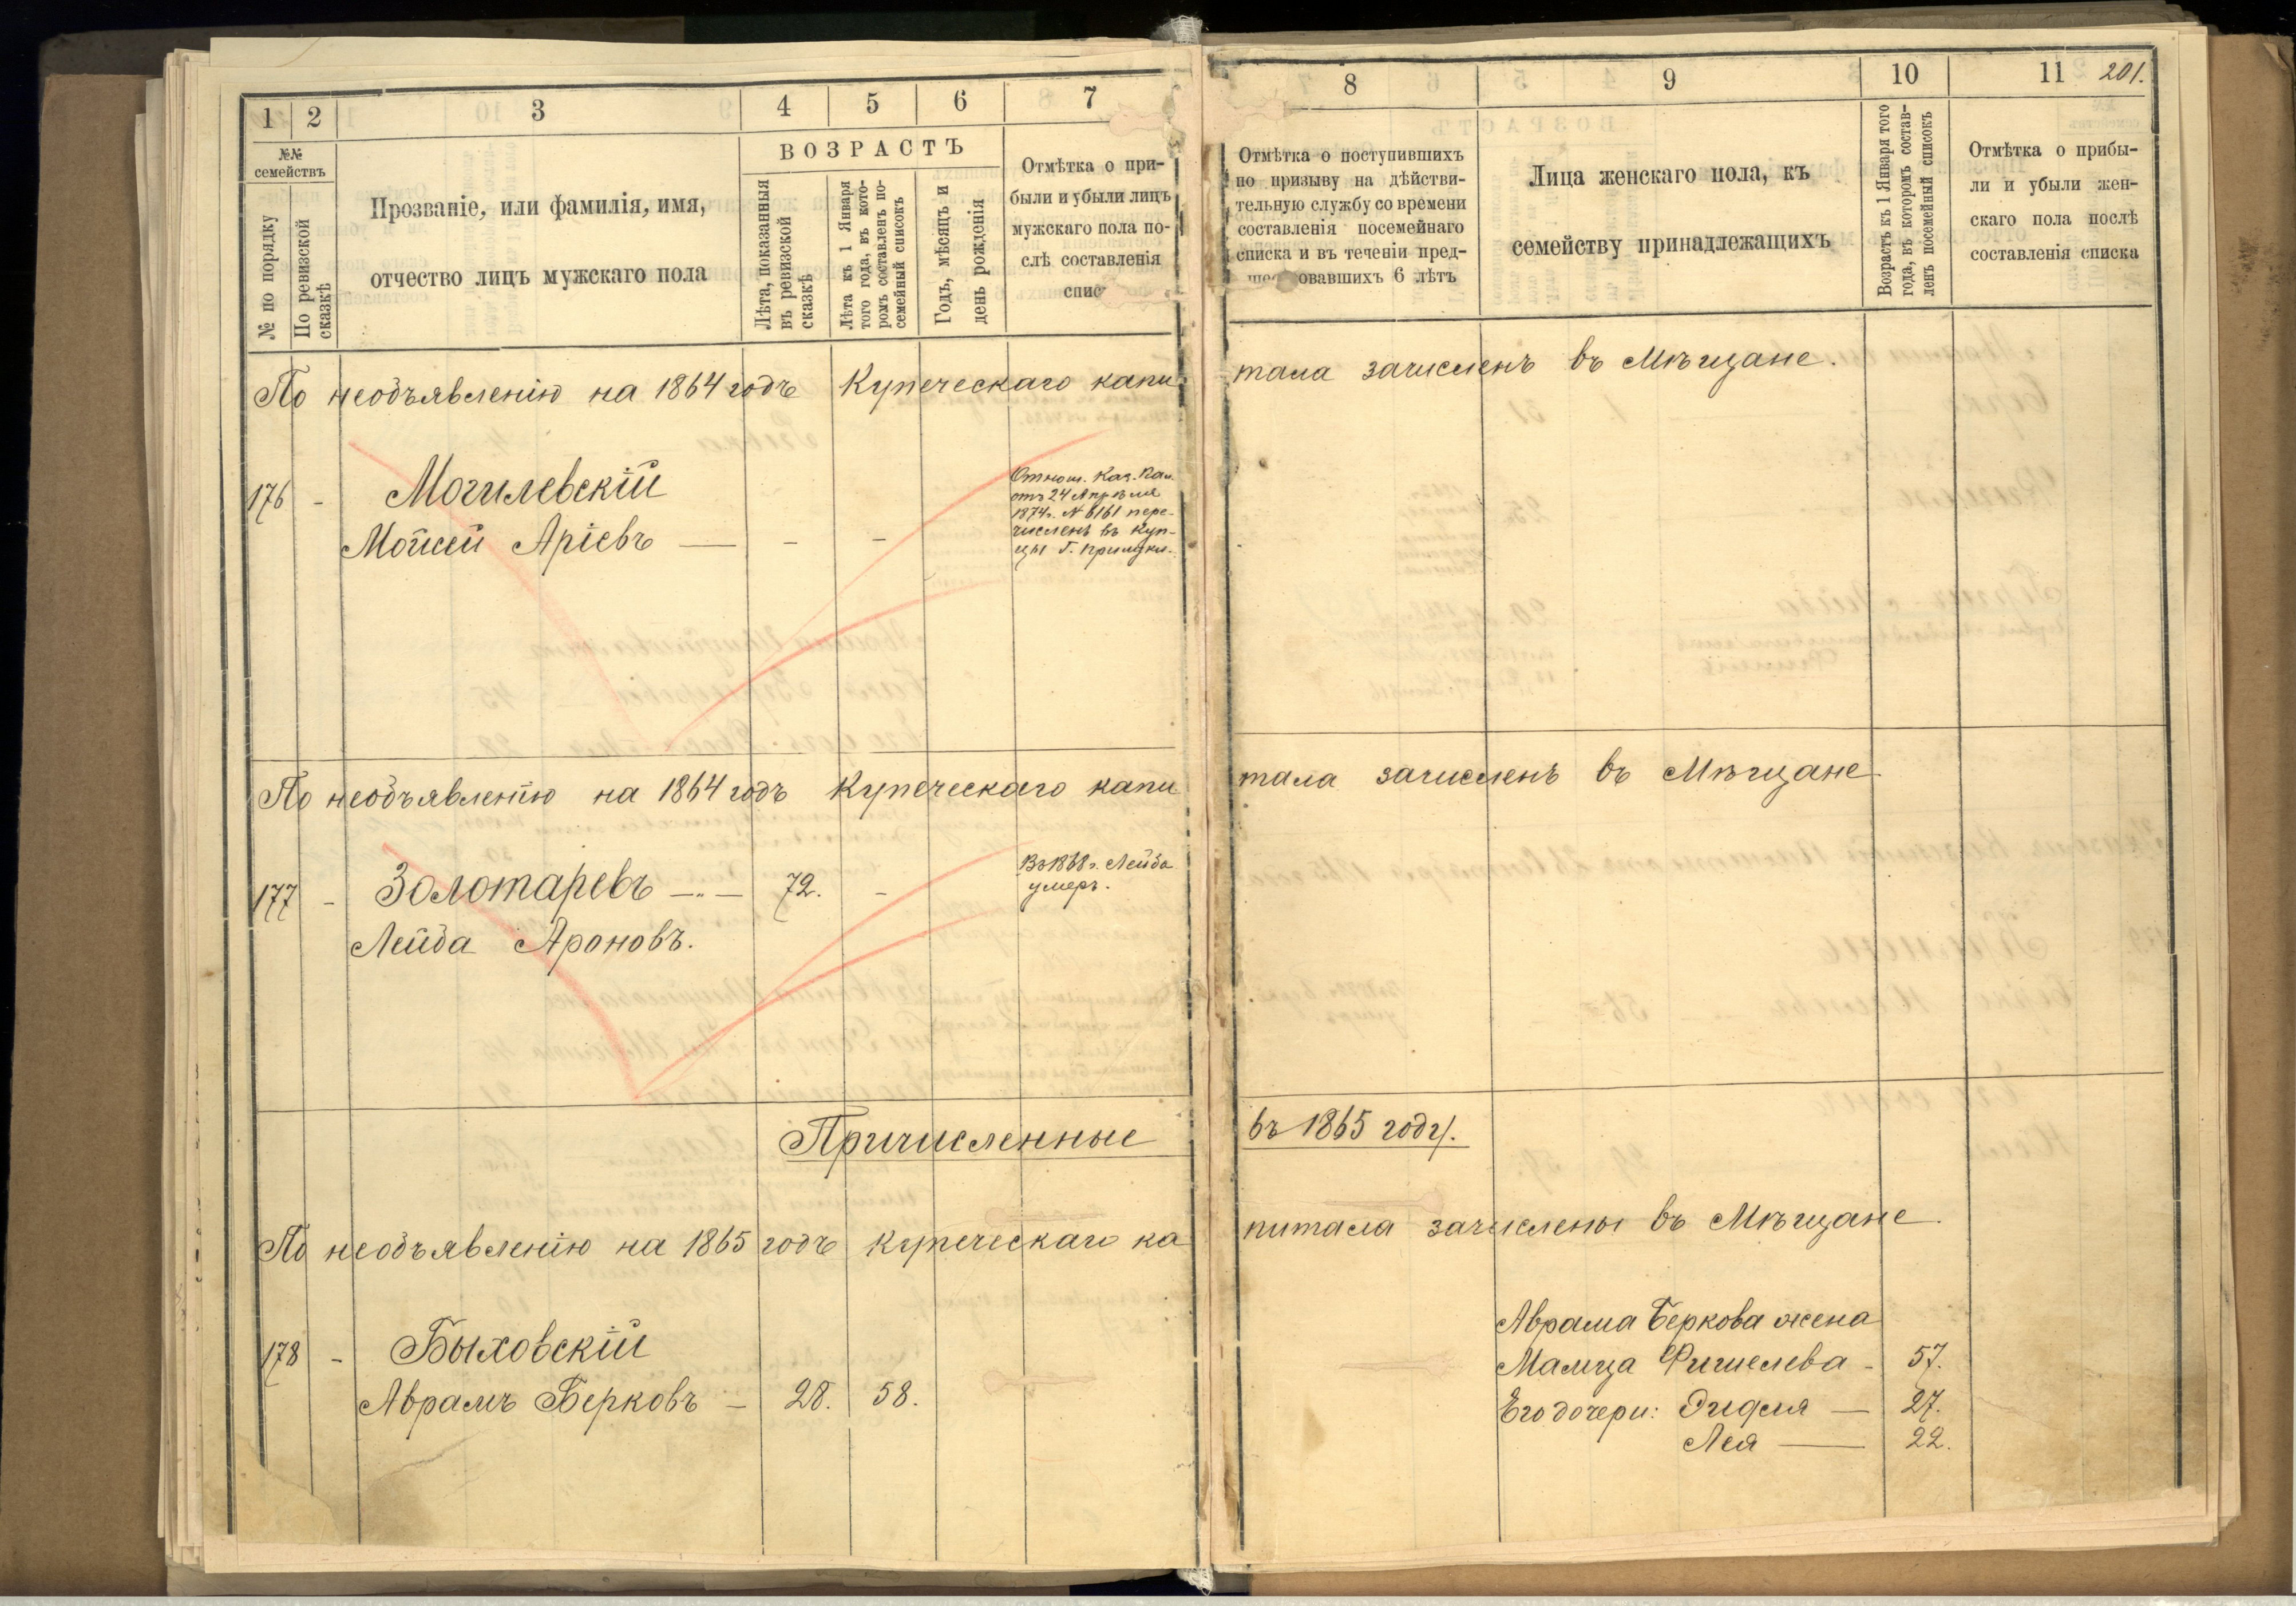 1 2 3 4 5 6 7
№№ семействъ
№ по порядку
По ревизской сказкѣ
Прозваніе, или фамилія, имя,
отчество лицъ мужскаго пола
ВОЗРАСТЪ
Лѣта, показанныя
въ ревизской
сказкѣ
Лѣта къ 1 Января
того года, въ кото-
ромъ составленъ по-
семейный списокъ
Годъ, мѣсяцъ и
день рожденія
Отмѣтка о при-
были и убыли лицъ
мужскаго пола по-
слѣ составленія
спис
По необъявленію на 1864 годъ Купеческаго капи
176 - Могилевскій
Мойсей Аріевъ — - -
Отнош. Каз. Пал.
отъ 24 Апрѣля
1874г. № 6161 пере-
численъ въ куп-
цы г. Прилуки.
По необъявленію на 1864 годъ Купеческаго капи
177 - Золотаревъ — 72. -
Лейба Ароновъ.
Въ 1868г. Лейба
умеръ.
Причисленные
По необъявленію на 1865 годъ купеческаго ка
178 - Быховскій
Аврамъ Берковъ — 28. 58.
8 9 10 11 201.
Отмѣтка о поступившихъ
по призыву на дѣйстви-
тельную службу со времени
составленія посемейнаго
списка и въ теченіи пред-
ше овавшихъ 6 лѣтъ
Лица женскаго пола, къ
семейству принадлежащихъ
Возрастъ къ 1 Января того
года, въ которомъ состав-
ленъ посемейный списокъ
Отмѣтка о прибы-
ли и убыли жен-
скаго пола послѣ
составленія списка
тала зачисленъ въ Мѣщане.
тала зачисленъ въ Мѣщане.
въ 1865 году.
питала зачислены въ Мѣщане.
Аврама Беркова жена
Малица Фишелева - 57.
Его дочери: — 27.
Лея — 22.